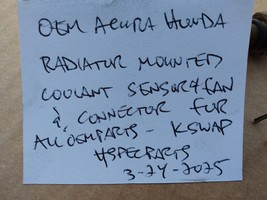 OEM ACURA HONDA
RADIATOR MOUNTED
COOLANT SENSOR & FAN
& CONNECTOR FOR
ALL OEM PARTS - KSWAP
HSPECPARTS
3-24-2025